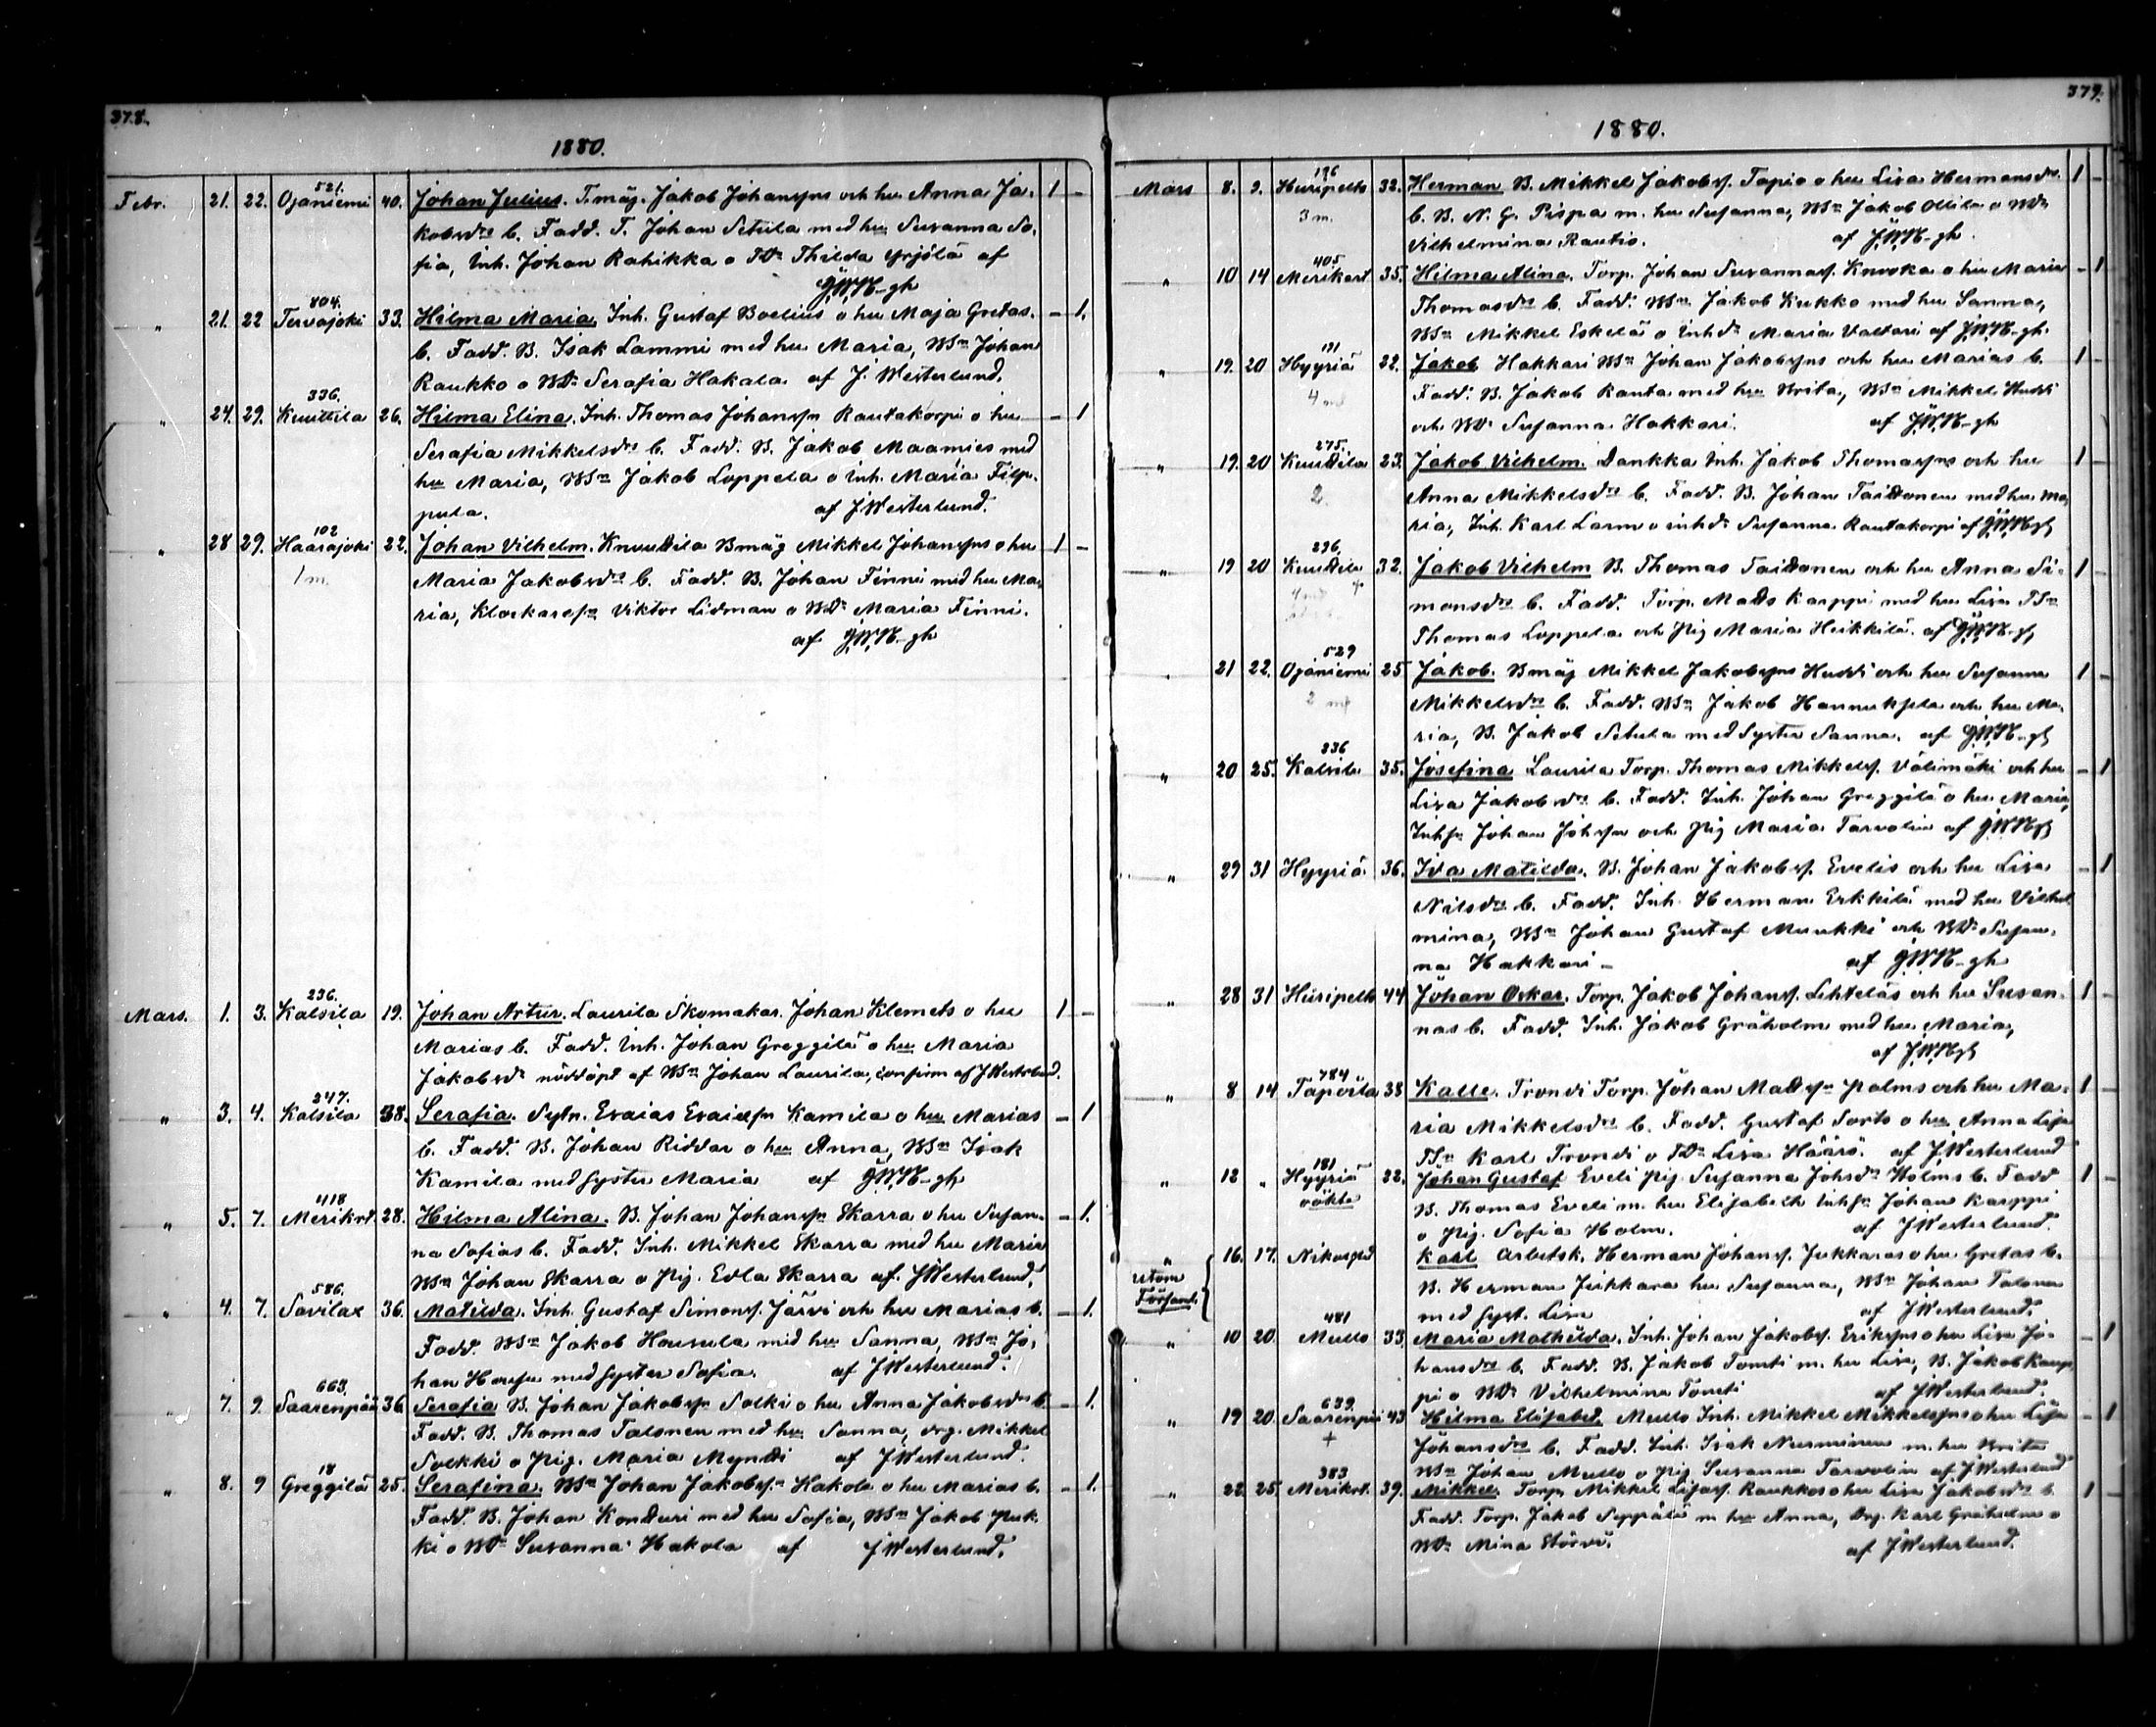 378.
1880.
521.
Febr. 21. 22. Ojaniemi 40. Johan Julius. T.mäg. Jakob Johansssns och hu Anna Ja- 1 -
kobsdrs b. Fadd. T. Johan Setula med hu Susanna So-
fia, Inh. Johan Rahikka o TDr Thilda Yrjölä af
J.W.N-gh
804.
" 21. 22 Tervajoki 33. Hilma Maria. Inh. Gustaf Boelius o hu Maja Gretas. - 1.
b. Fadd. B. Isak Lammi med hu Maria, BSn Johan
Raukko o BDr Serafia Hakala. af J. Westerlund.
336.
" 24. 29. Kuuttila 26. Hilma Elina. Inh. Thomas Johansson Rautakorpi o hu - 1
Serafia Mikkelsdrs b. Fadd. B. Jakob Maamies med
hu Maria, BSn Jakob Loppela o Inh. Maria Filp-
pula. af J Westerlund.
102
" 28 29. Haarajoki 22. Johan Vilhelm. Knuuttila Bmåg Mikkel Johanssns o hu 1 -
1 m. Maria Jakobsdrs b. Fadd. B. Johan Finni med hu Ma-
ria, Klockaresn Viktor Lidman o BDr Maria Finni.
af J.W.N-gh
236.
Mars. 1. 3. Kalsila 19. Johan Artur. Laurila Skomakar. Johan Klemets o hu 1 -
Marias b. Fadd. Inh. Johan Greggilä o hu Maria
Jakobsdr nöddöpt af BSn Johan Laurila, confirm af J Westerlund.
247.
" 3. 4. Kalsila 38. Serafia. Sytn. Esaias Esaiasn Kamila o hu Marias - 1
b. Fadd. B. Johan Riddar o hu Anna, BSn Isak
Kamila med syster Maria af J.W.N-gh
418
" 5. 7. Merikrt. 28. Hilma Alina. B. Johan Johanssn Skarra o hu Susan- - 1.
na Sofias b. Fadd. Inh. Mikkel Skarra med hu Maria
BSn Johan Skarra o Pig. Edla Skarra af. J Westerlund.
586.
" 4. 7. Savilax 36. Matilda. Inh. Gustaf Simonss. Järvi och hu Marias b. - 1.
Fadd. BSn Jakob Housula med hu Sanna, BSn Jo-
han med syster Sofia. af J Westerlund.
663.
" 7. 9. Saarenpää 36 Serafia B. Johan Jakobssn Solki o hu Anna Jakobsdrs b. - 1.
Fadd. B. Thomas Talonen med hu Sanna, drg. Mikkel
Solkki o Pig. Maria Myntti af J Westerlund.
18
" 8. 9 Greggilä 25. Serafina. BSn Johan Jakobssn Hakola o hu Marias b. - 1.
Fadd. B. Johan Kontturi med hu Sofia, BSn Jakob Puk-
ki o BDr Susanna Hakola af J Westerlund.
379.
1880.
196
Mars 8. 9. Hiiripelto 32. Herman B. Mikkel Jakobss. Tapio o hu Lisa Hermansdrs 1 -
3 m. b. B. N. G. Pispa m. hu Susanna, BSn Jakob Ollila o BDr
Vilhelmina Rautio. af J.W.N-gh.
405
" 10 14 Merikart 35. Hilma Alina. Torp. Johan Susannass. Knooka o hu Maria - 1
Thomasdrs b. Fadd. BSn Jakob Kukko med hu Sanna,
BSn Mikkel Eskelä o Inhdr Maria Valtari af J.W.N-gh.
191
" 19. 20 Hyyriä 22. Jakob Hakkari BSn Johan Jakobssns och hu Marias b. 1 -
4 Fadd. B. Jakob Ranta med hu Brita, BSn Mikkel Hudd
och BDr Susanna Hakkari. af J.W.N-gh
275.
" 19. 20 Kuuttila 23. Jakob Vilhelm. Dankka Inh. Jakob Thomassns och hu 1 -
2. Anna Mikkelsdrs b. Fadd. B. Johan Taittonen med hu Ma-
ria, Inh. Karl Larm o inhdr Susanna Rautakorpi af J.W.N-gh
296.
" 19 20 Kuuttila 32. Jakob Vilhelm B. Thomas Taittonen och hu Anna Si- 1 -
monsdrs b. Fadd. Torp. Matts Karppi med hu Lisa TSn
Thomas Loppela och Pig Maria Heikkilä. af J.W.N-gh
529
" 21 22. Ojaniemi 25 Jakob. Bmåg Mikkel Jakobssns Huddi och hu Susanna 1 -
2 Mikkelsdrs b. Fadd. BSn Jakob Hannuksela och hu Ma-
ria, B. Jakob Setula med syster Sanna. af J.W.N-gh
236
" 20 25. Kalsila 35. Josefina Laurila Torp. Thomas Mikkelss. Välimäki och hu - 1
Lisa Jakobsdrs b. Fadd. Inh. Johan Greggilä o hu Maria,
Inhsn Johan Johssn och Pig Maria Tarvolin af J.W.N-gh
" 29 31 Hyyriä 36. Ida Matilda. B. Johan Jakobss. Evelis och hu Lisa - 1
Nilsdrs b. Fadd. Inh. Herman Erkkilä med hu Vilhel
mina, BSn Johan Gustaf Muukki och BDr Susan-
na Hakkari - af J.W.N-gh
" 28 31 Hiiripelto 44 Johan Oskar. Torp. Jakob Johanss. Lehteläs och hu Susan- 1 -
nas b. Fadd. Inh. Jakob Gråholm med hu Maria,
af J.W.N-gh
784
" 8 14 Taporila 38 Kalle. Trondi Torp. Johan Mattssn Palms och hu Ma- 1 -
ria Mikkelsdrs b. Fadd. Gustaf Sorto o hu Anna Lisa
TSn Karl Trondi o TDr Lisa Häärö. af J Westerlund
181
" 12 " Hyyriä 22. Johan Gustaf Eveli Pig Susanna Johsdr Holms b. Fadd 1 -
oäkta B. Thomas Eveli m. hu Elisabeth Inhsn Johan Karppi
o Pig. Sofia Holm. af J Westerlund.
" 16. 17. Karl Arbetsk. Herman Johanss. Jukkaras o hu Gretas b.
utom B. Herman Jukkara hu Susanna, BSn Johan Talonen
Församl. med syst. Lisa af J Westerlund.
481
" 10 20. Mullo 33. Maria Mathilda. Inh. Johan Jakobss. Erikssns o hu Lisa Jo- - 1
hansdrs b. Fadd. B. Jakob Tomti m. hu Lisa, B. Jakob Kaup-
pi o BDr Vilhelmina Tomti af J Westerlund.
639.
" 19 20. Saarenpää 43 Hilma Elisabed. Mullo Inh. Mikkel Mikkelssns o hu Lisa - 1
+ Johansdrs b. Fadd. Inh. Isak Nurminen m. hu Brita
BSn Johan Mullo o Pig Susanna Tarvolin af J Westerlund
383
" 22. 25. Merikrt. 39. Mikkel. Torp. Mikkel Lisass. Raukkos o hu Lisa Jakobsdrs b. 1 -
Fadd. Torp. Jakob Seppälä m hu Anna, Drg. Karl Gråholm o
BDr Mina Storsvi. af J Westerlund.